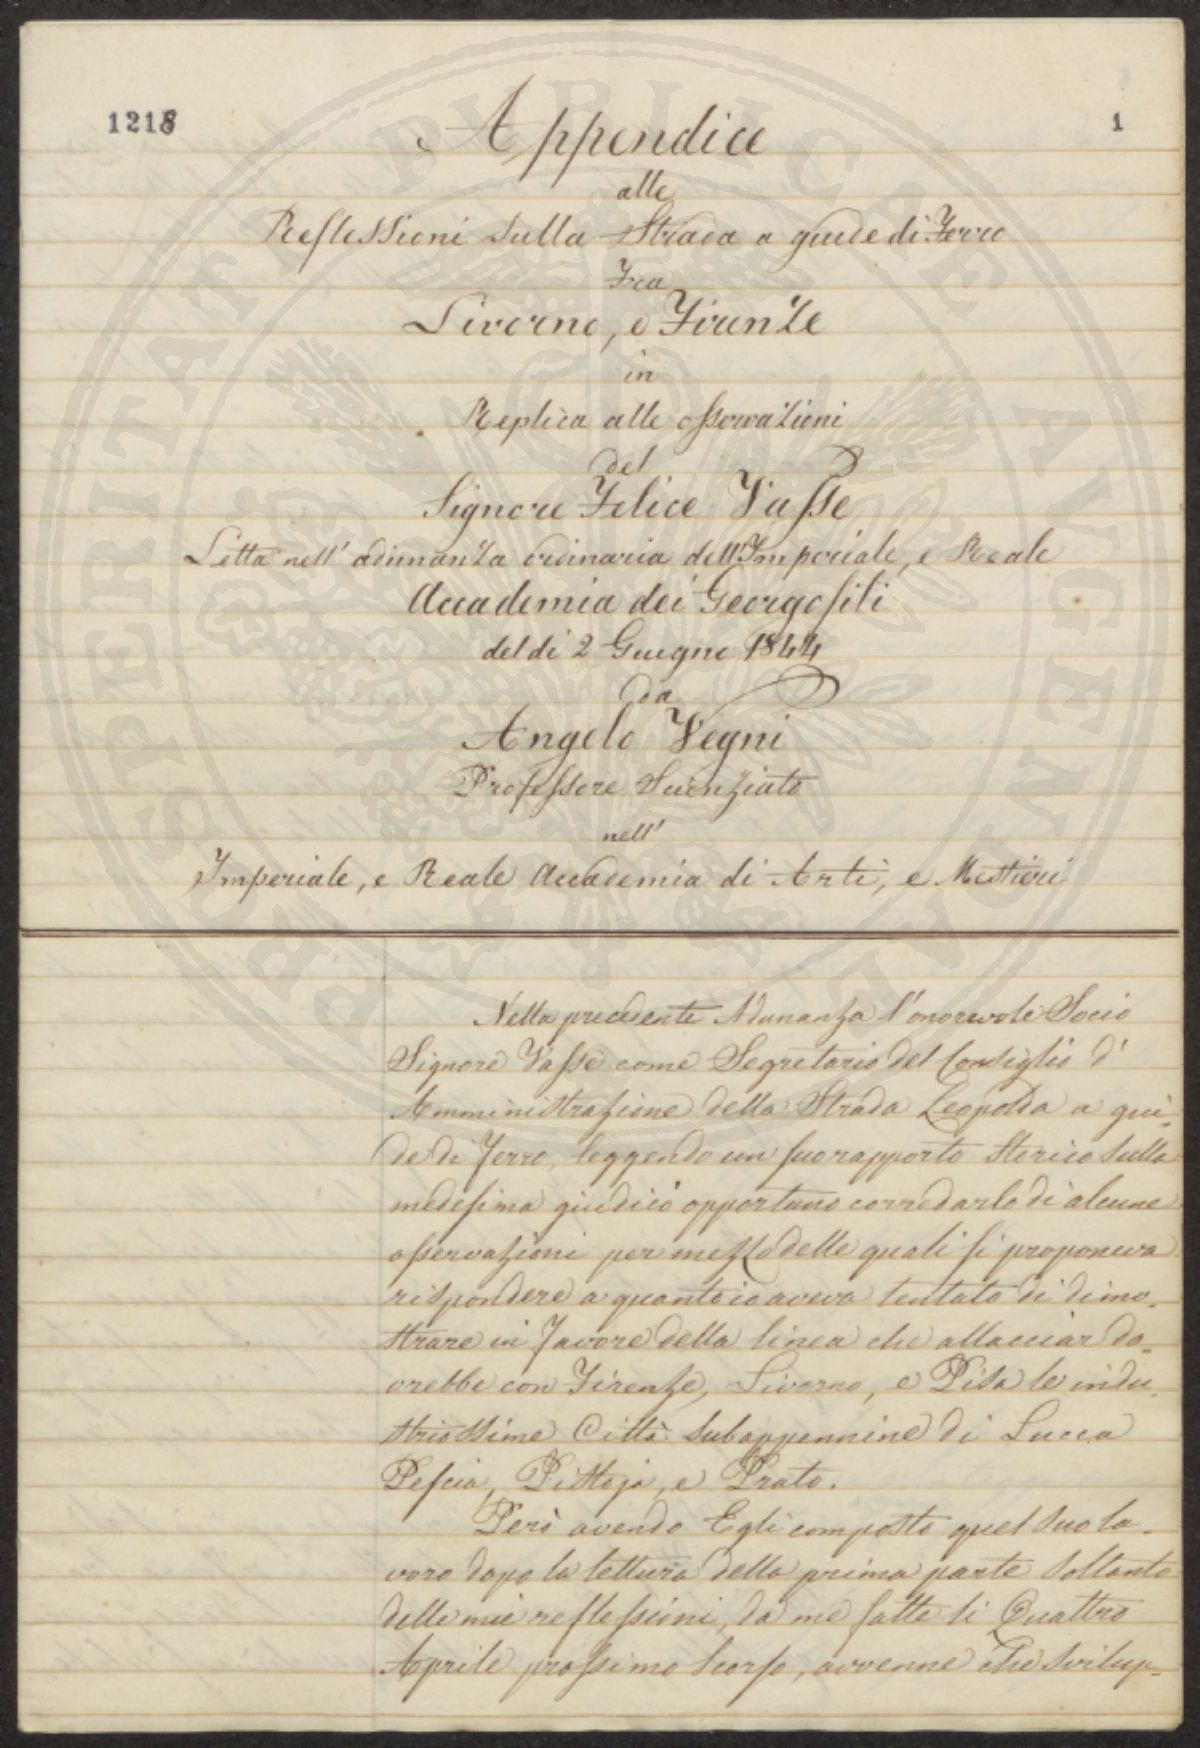 1218
1
Appendice
alle
Reflessioni sulla Strada a guide di Ferro
Fra
Livorno, e Firenze
in
Replica alle osservazioni
del
Signore Felice Vasse
Letta nell' adunanza ordinaria dell'Imperiale, e Reale
Accademia dei Georgofili
del dì 2 Giugno 1844
da
Angelo Vegni
Professore Scienziato
nell'
Imperiale, e Reale Accademia di Arti, e Mestieri
Nella precedente Adunanza l'onorevole Socio
Signore Vasse come Segretario del Consiglio d'
Amministrazione della Strada Leopolda a gui-
de di Ferro, leggendo un suo rapporto storico sulla
medesima giudicò opportuno corredarlo di alcune
osservazioni per mezzo delle quali si proponeva
rispondere a quanto io aveva tentato di dimo-
strare in favore della linea che allacciar do-
vrebbe con Firenze, Livorno, e Pisa le indu-
striossime Città subappennine di Lucca
Pescia, Pistoja, e Prato.
Però avendo Egli composto quel suo la-
voro dopo la lettura della prima parte soltanto
delle mie reflessioni, da me fatte li Quattro
Aprile prossimo scorso, avvenne che svilup-
PROSPERITATI PUBLICAE AUGENDAE